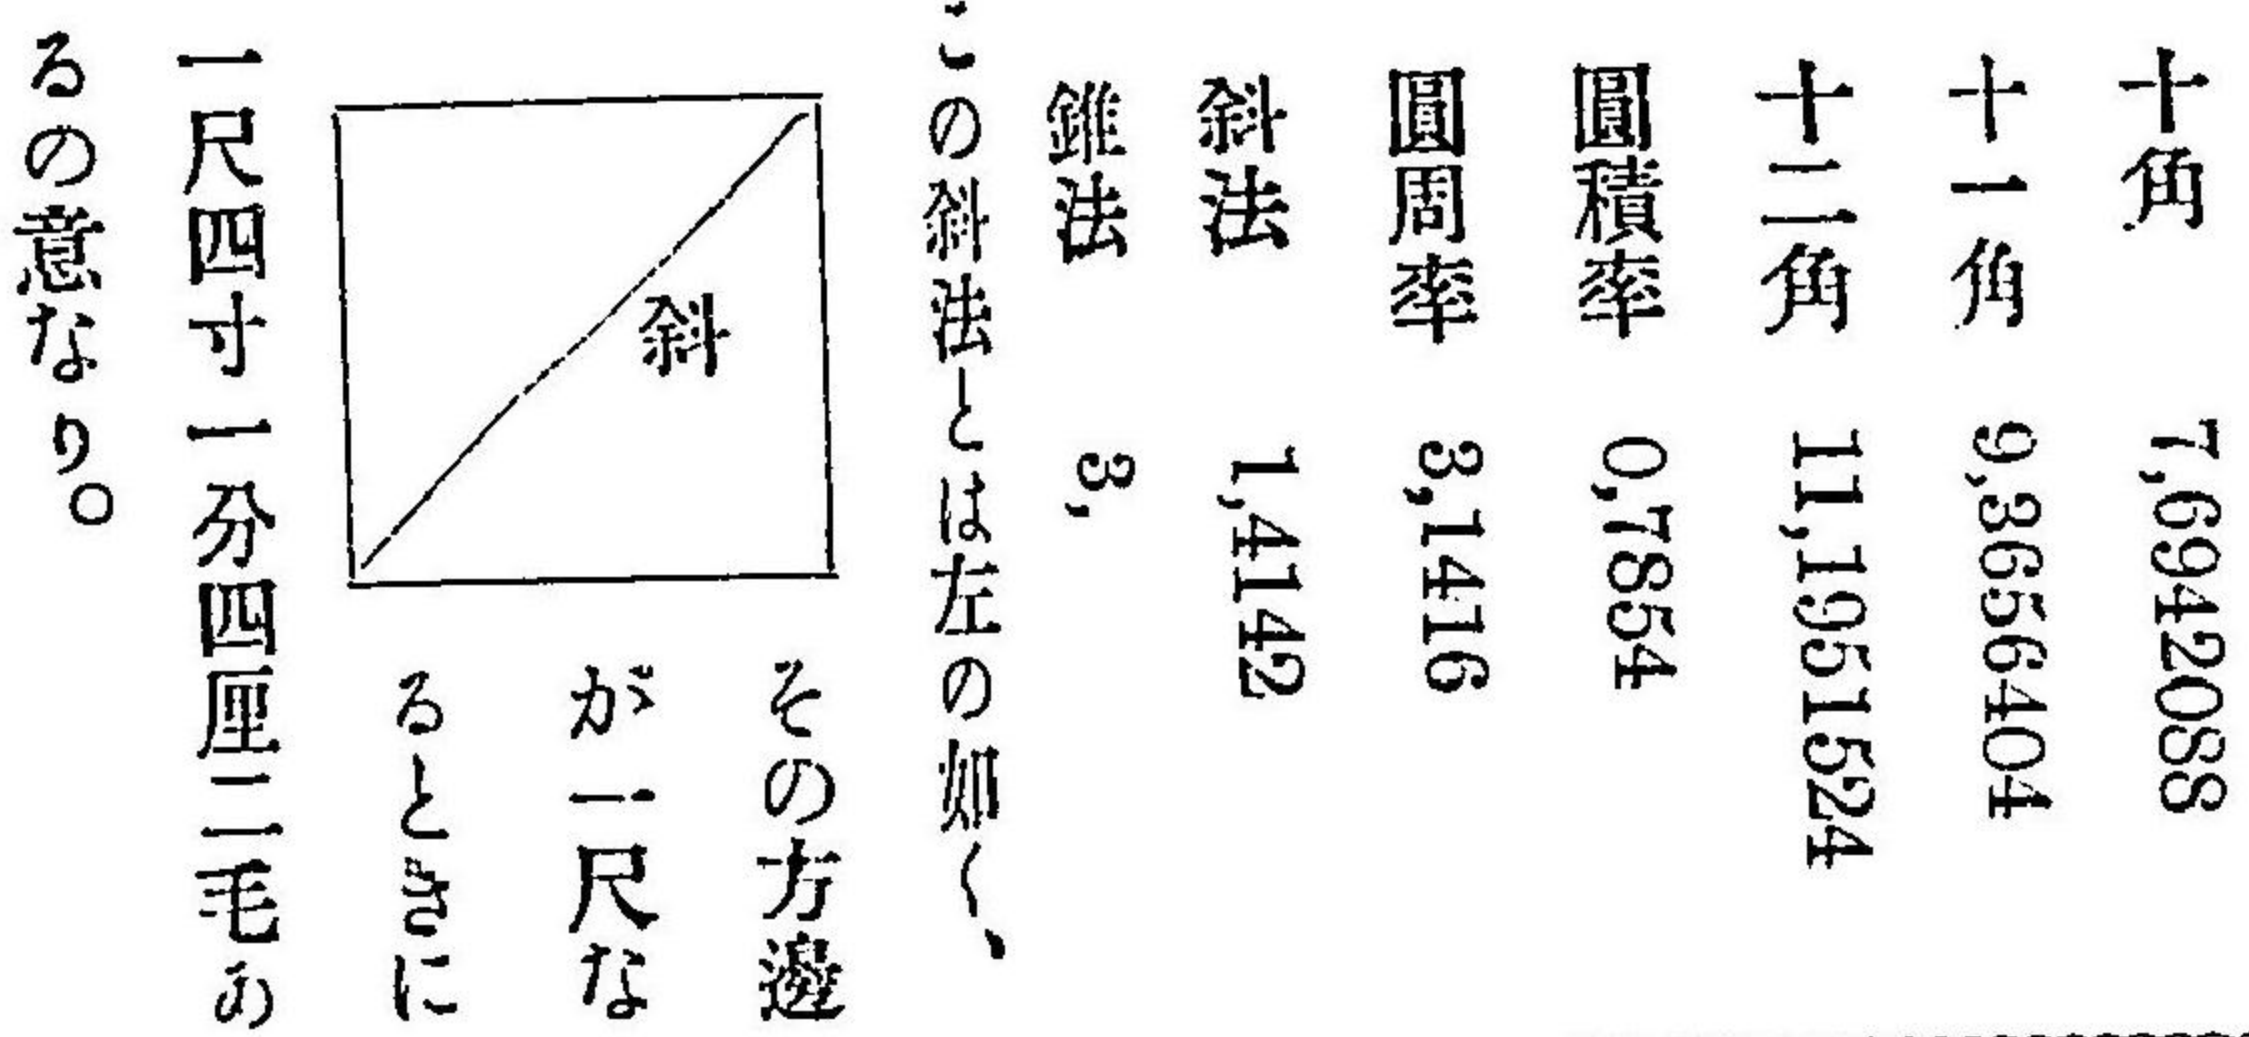 十角 7,6942088
十一角 9,3656404
十二角 11,1951524
圓積率 0,7854
圓周率 3,1416
斜法 1,4142
錐法 3,
この斜法とは左の如く、
斜
その方邊
が一尺な
るときに
一尺四寸一分四厘二毛あ
るの意なり。